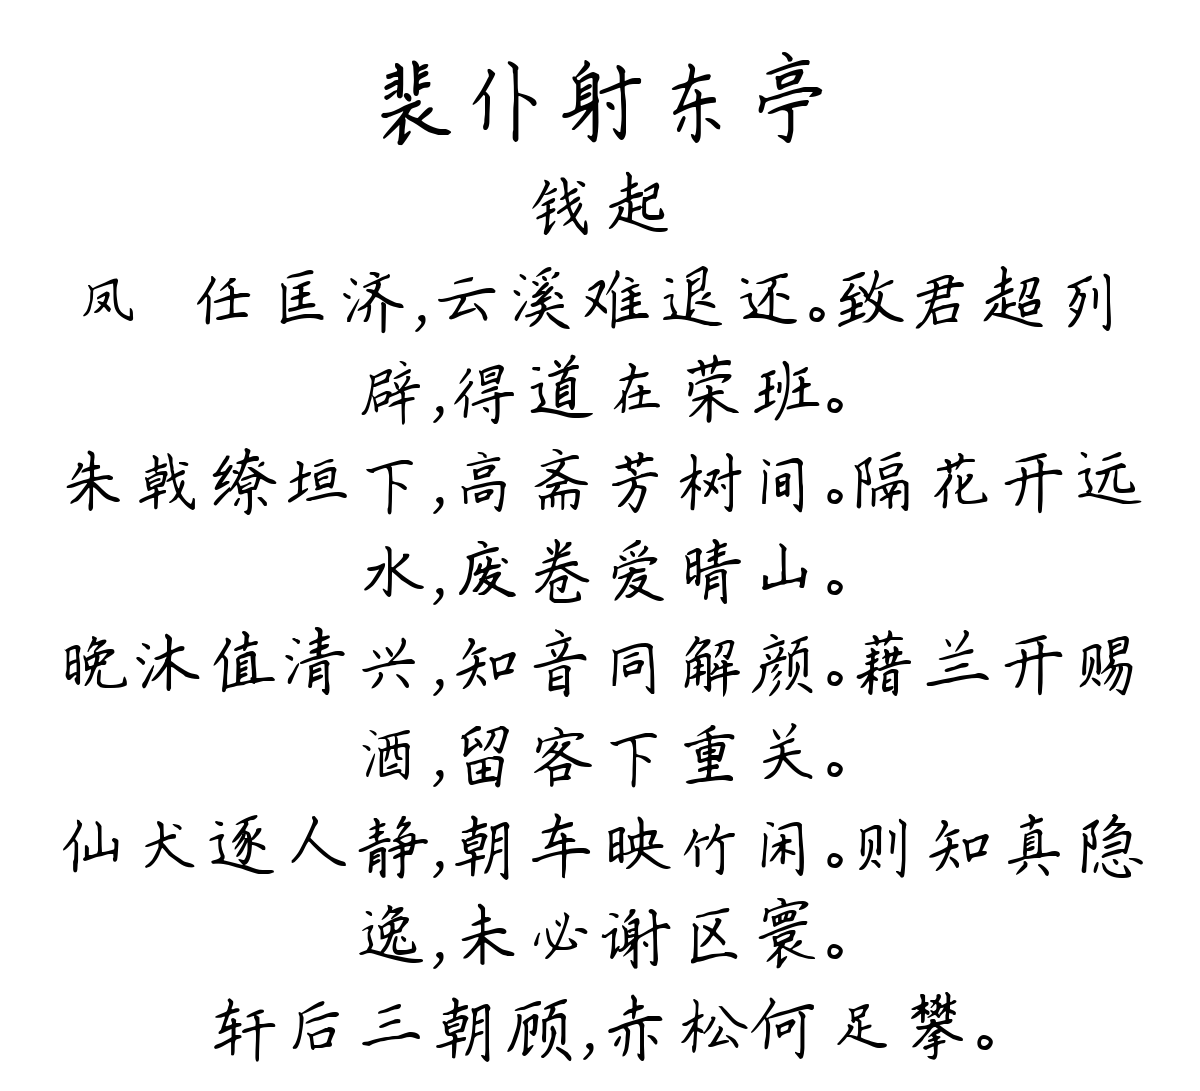 裴仆射东亭
钱起
凤 任匡济,云溪难退还。致君超列
辟,得道在荣班。
朱戟缭垣下,高斋芳树间。隔花开远
水,废卷爱晴山。
晚沐值清兴,知音同解颜。藉兰开赐
酒,留客下重关。
仙犬逐人静,朝车映竹闲。则知真隐
逸,未必谢区寰。
轩后三朝顾,赤松何足攀。